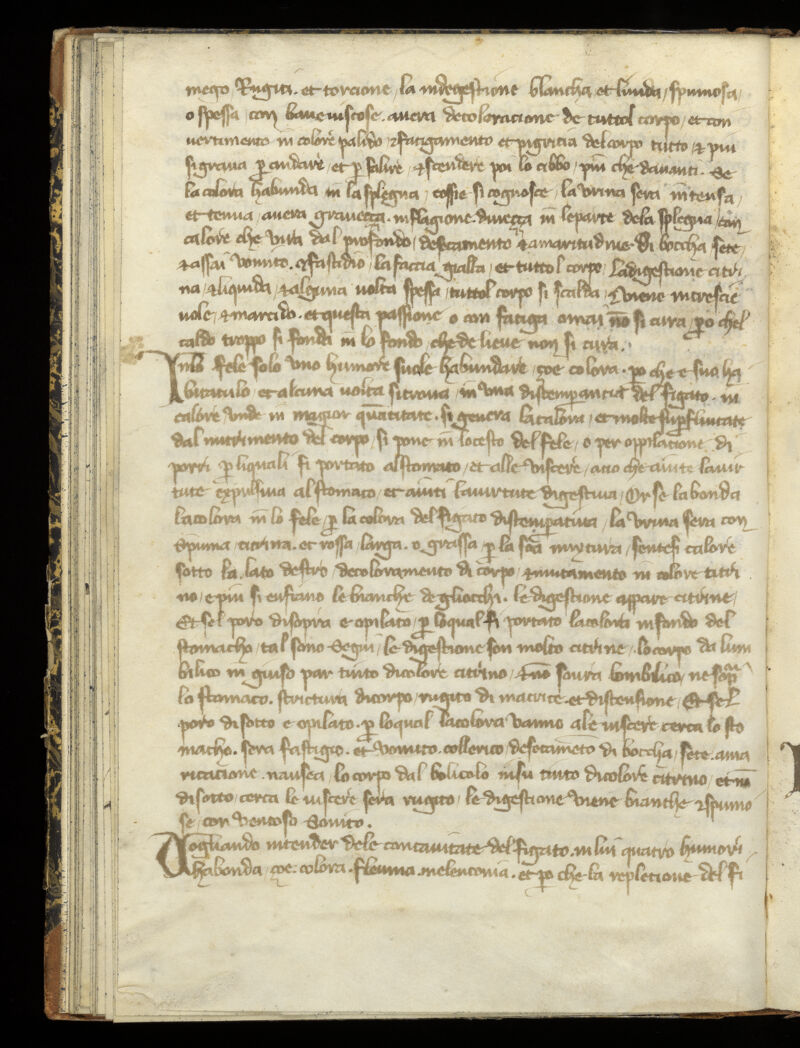 mego Rugiti. et torcione, la indegestione blancha et livida, spumosa,
o spessa con bave viscose. avera decoloracione de tuttol corpo, et con
vertimento in colore palido, et fatigamento et pigricia del corpo tutto, et piu
si grava p andare, et p salire, et scendere poi lo cibbo, piu che davanti. Se
la colora habunda in la splegna, cossie si cognosce, la urina sera intensa,
et tenua, avera graveçça. inflagione. dureçça in le parte dela splegna, con
calore che vien dal profondo, desecamento et amaritudine di boccha sete,
et assai vomito. et fastidio, la faccia gialla, et tutto l corpo, La digestione citri
na, et liquida, et alguna volta spessa, tuttol corpo si scalda, et viene increscie
vole, et marcido. et questa passione o con fatiga o mai no si cura, po chel
caldo troppo si fonda in lo fondo, che de lieve non si cura.
In lo fele solo uno humore suole habundare, çoe colora. po che e sua ha
bitaculo, et alcuna volta si trova, in una distemperancia del figato. in
calore unde in magior quantitate. si genera la colora, et molte superfluitate
dal nutrimento del corpo, si pone in lo cesto del fele, o per oppilacione di
porri p li quali si portato al stomato, et alle viscere, acio che aiute la vir
tute expulsiva al stomaco, et aiuti la virtute digestiva, Or se la bonda
la colora in lo fele, p la colora del figato distemperatura, la urina sera con
spuma, citrina. et rossa, larga. o grassa, p la soa mixtura, sentesi calore
sotto la. lato destro, decoloramento di corpo, et mutamento in colore citri
no, e piu si enfiano le bianche degliocchi. le digestione appare citrine,
Et sel poro disopra e opilato, p lo qual si portato la colora in fondo del
stomacho, tal sono segni, le digestione son molto citrine. lo corpo da lum
bilico in giuso par tinto di colore citrino, et no soura lombilico, ne sopra
lo stomaco. strictura di corpo, rugito di matrice. et distensione, Et sel
poro di sotto e opilato. p lo qual la colora vanno ale viscere cerca lo sto
macho. sera fastigio. et vomito. collerico, desecameto di boccha, sete. ama
ricacione. nausea, lo corpo dal bolicolo insu tinto di colore citrino, et no
di sotto, cerca le viscere sera rugito, le digestione viene bianche et spumo
se, con ventoso sonito.
Vogliando intender dele concavitate del figato. in lui quatro humori
habonda, çoe. colora. fleuma. melenconia. et po che la repletione del fi